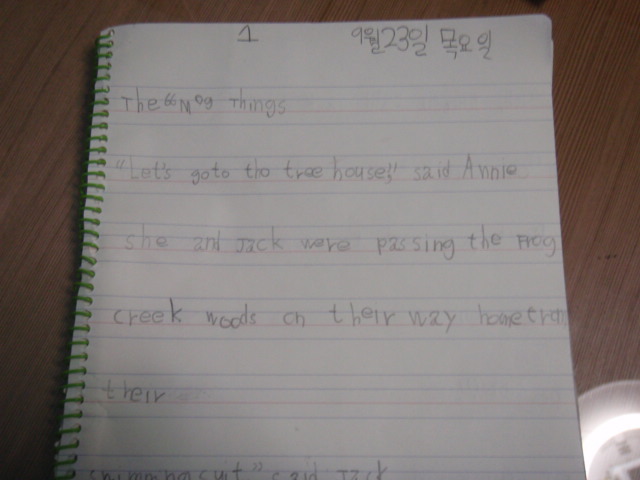 1 9월23일 목요일
The "Mog Things
"Let's goto tho tree house," said Annie
she and Jack were passing the Frog
creek woods on their way home from
their
said Jack